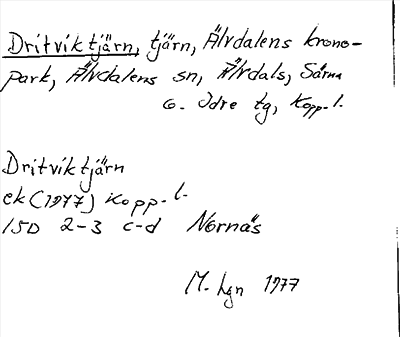 Dritviktjärn, tjärn, Älvdalens krono-
park, Älvdalens sn, Älvdals, Särna
o. Idre tg, Kopp. l.
Dritviktjärn
ek (1977) Kopp. l.
15D 2-3 c-d Nornäs
M. hgn 1977